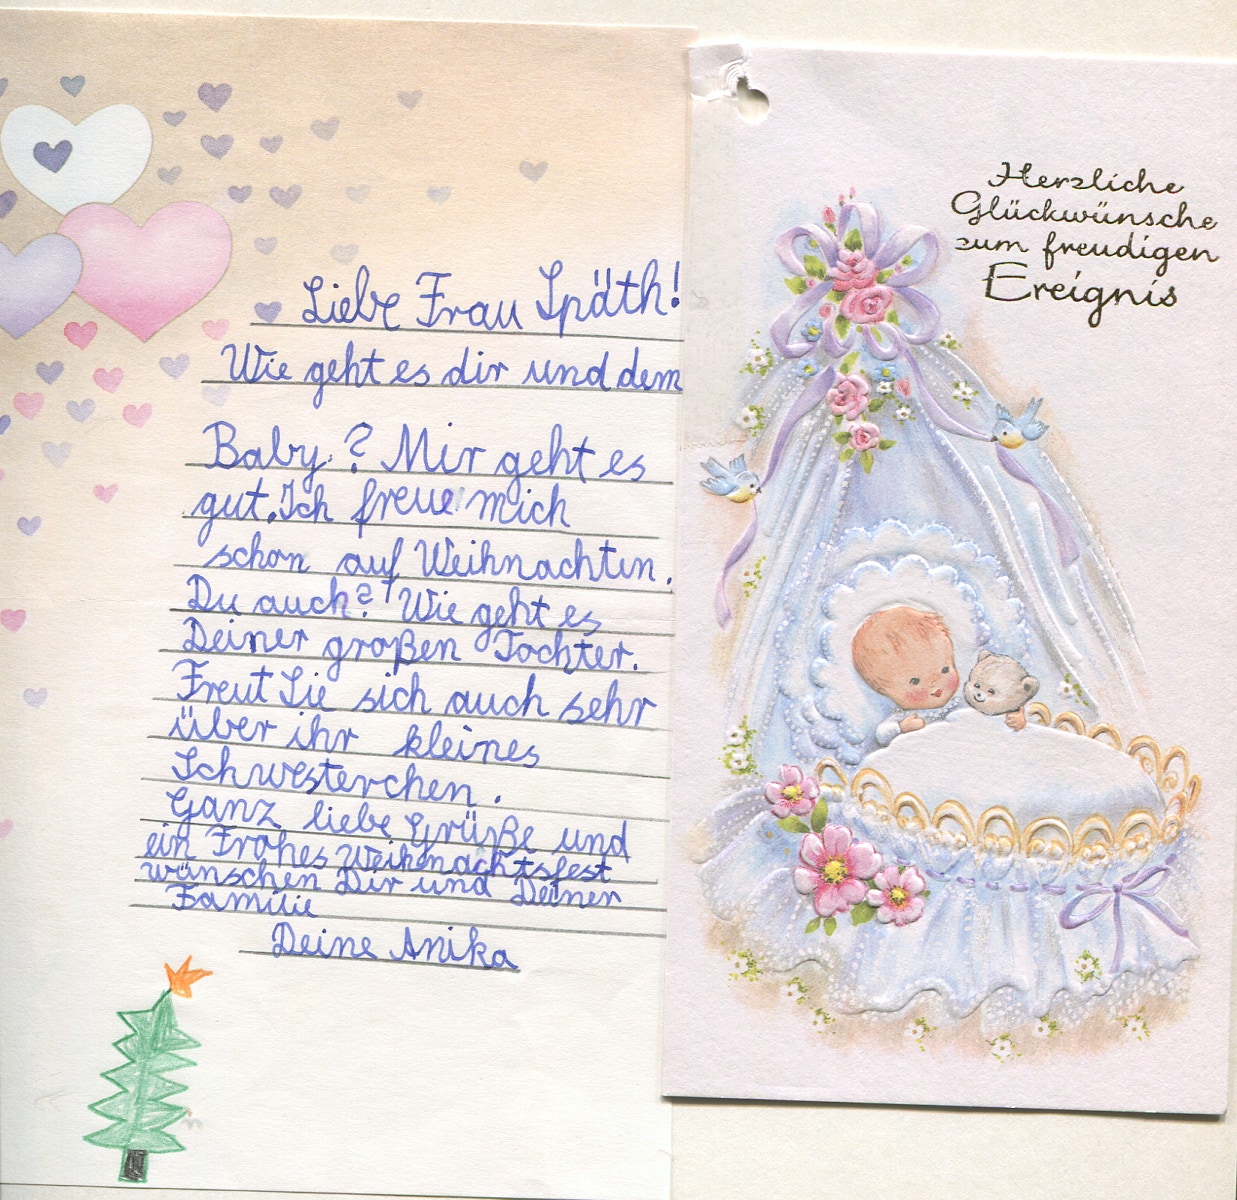 Liebe Frau Späth!
Wie geht es dir und dem
Baby? Mir geht es
gut. Ich freue mich
schon auf Weihnachten.
Du auch? Wie geht es
Deiner großen Tochter.
Freut Sie sich auch sehr
über ihr kleines
Schwesterchen.
Ganz liebe Grüße und
ein Frohes Weihnachtsfest
wünschen Dir und Deiner
Familie
Deine Anika
Herzliche
Glückwünsche
zum freudigen
Ereignis